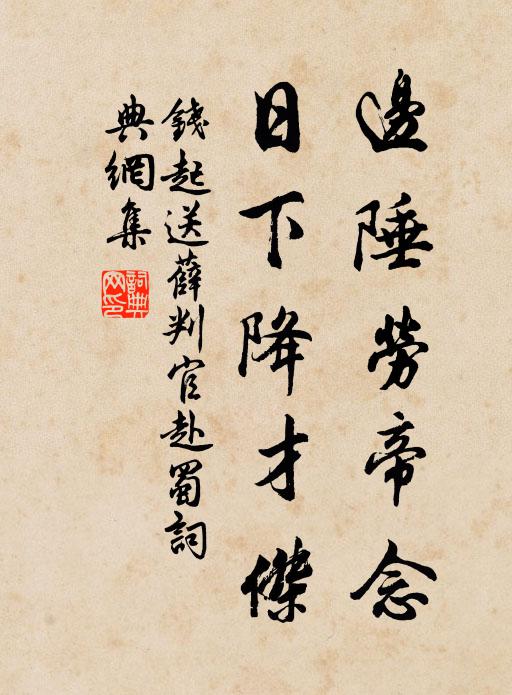 邊陲勞帝念
日下降才傑
錢起送薛判官赴蜀詞
典網集
詞典网印